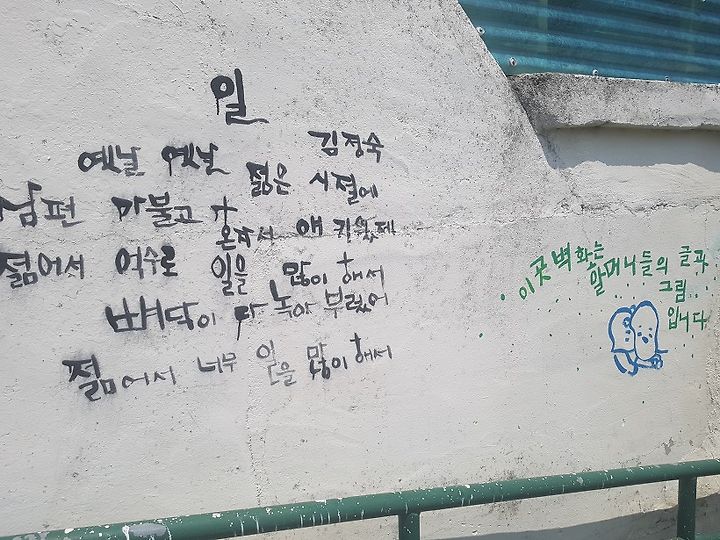 일
김정숙
옛날 옛날 젊은 시절에
남편 마불고
혼자서 애 키웠제
젊어서 억수로 일을 많이 해서
뼈닥이 다 녹아 부렀어
젊어서 너무 일을 많이 해서
이곳 벽화는
할머니들의 글과
그림
입니다